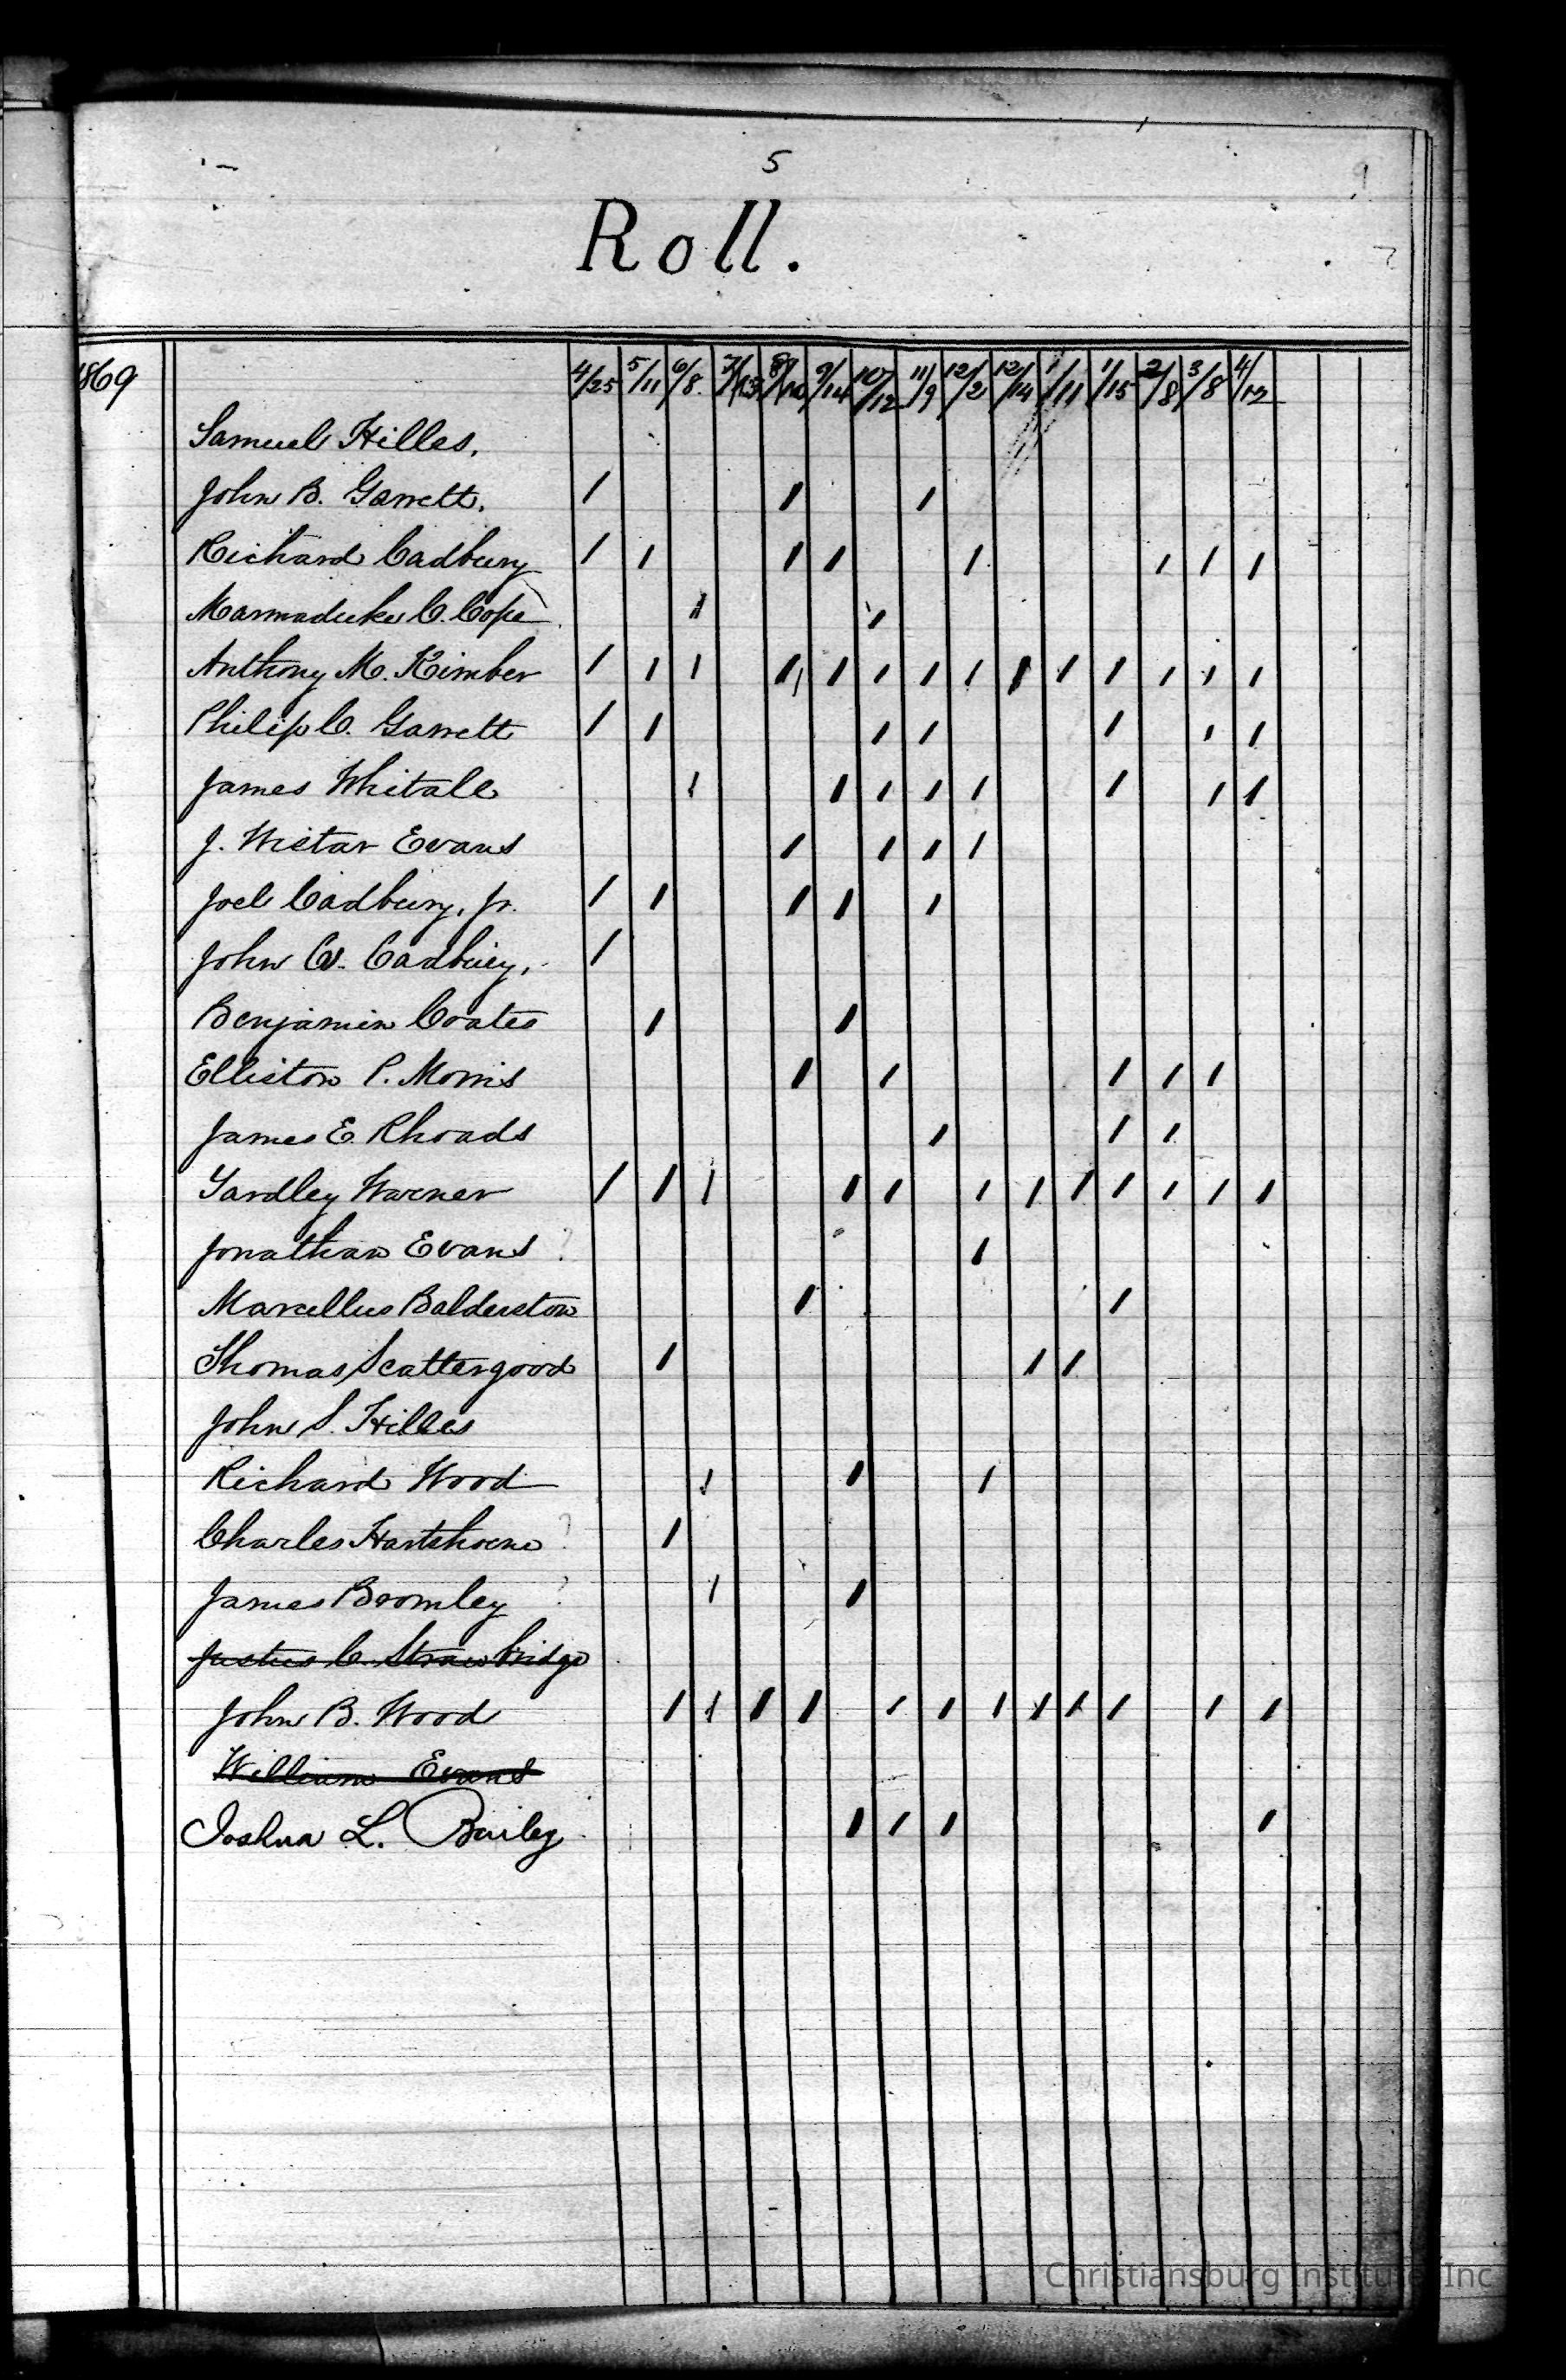 5
Roll.
1869 4/25 5/11 6/8 7/13 8/10 9/14 10/12 11/9 12/2 12/14 1/11 1/15 2/8 3/8 4/12
Samuel Hilles.
John B. Garrett. / / /
Richard Cadbury / / / / / / / /
Marmaduke C. Cope / /
Anthony M. Kimber / / / / / / / / / / / / / /
Philip C. Garrett / / / / / / /
James Whitall / / / / / / / /
J. Wistar Evans / / / /
Joel Cadbury, Jr. / / / / /
John W. Cadbury, /
Benjamin Coates / /
Elliston P. Morris / / / / /
James E. Rhoads / / /
Yardley Warner / / / / / / / / / / / / /
Jonathan Evans ? /
Marcellus Balderston / /
Thomas Scattergood / / /
John S. Hilles
Richard Wood / / /
Charles Hartshorne ? /
James Bromley ? / /
Justus C. Strawbridge
John B. Wood / / / / / / / / / / / /
William Evans
Joshua L. Bailey / / / /
Christiansburg Institute, Inc